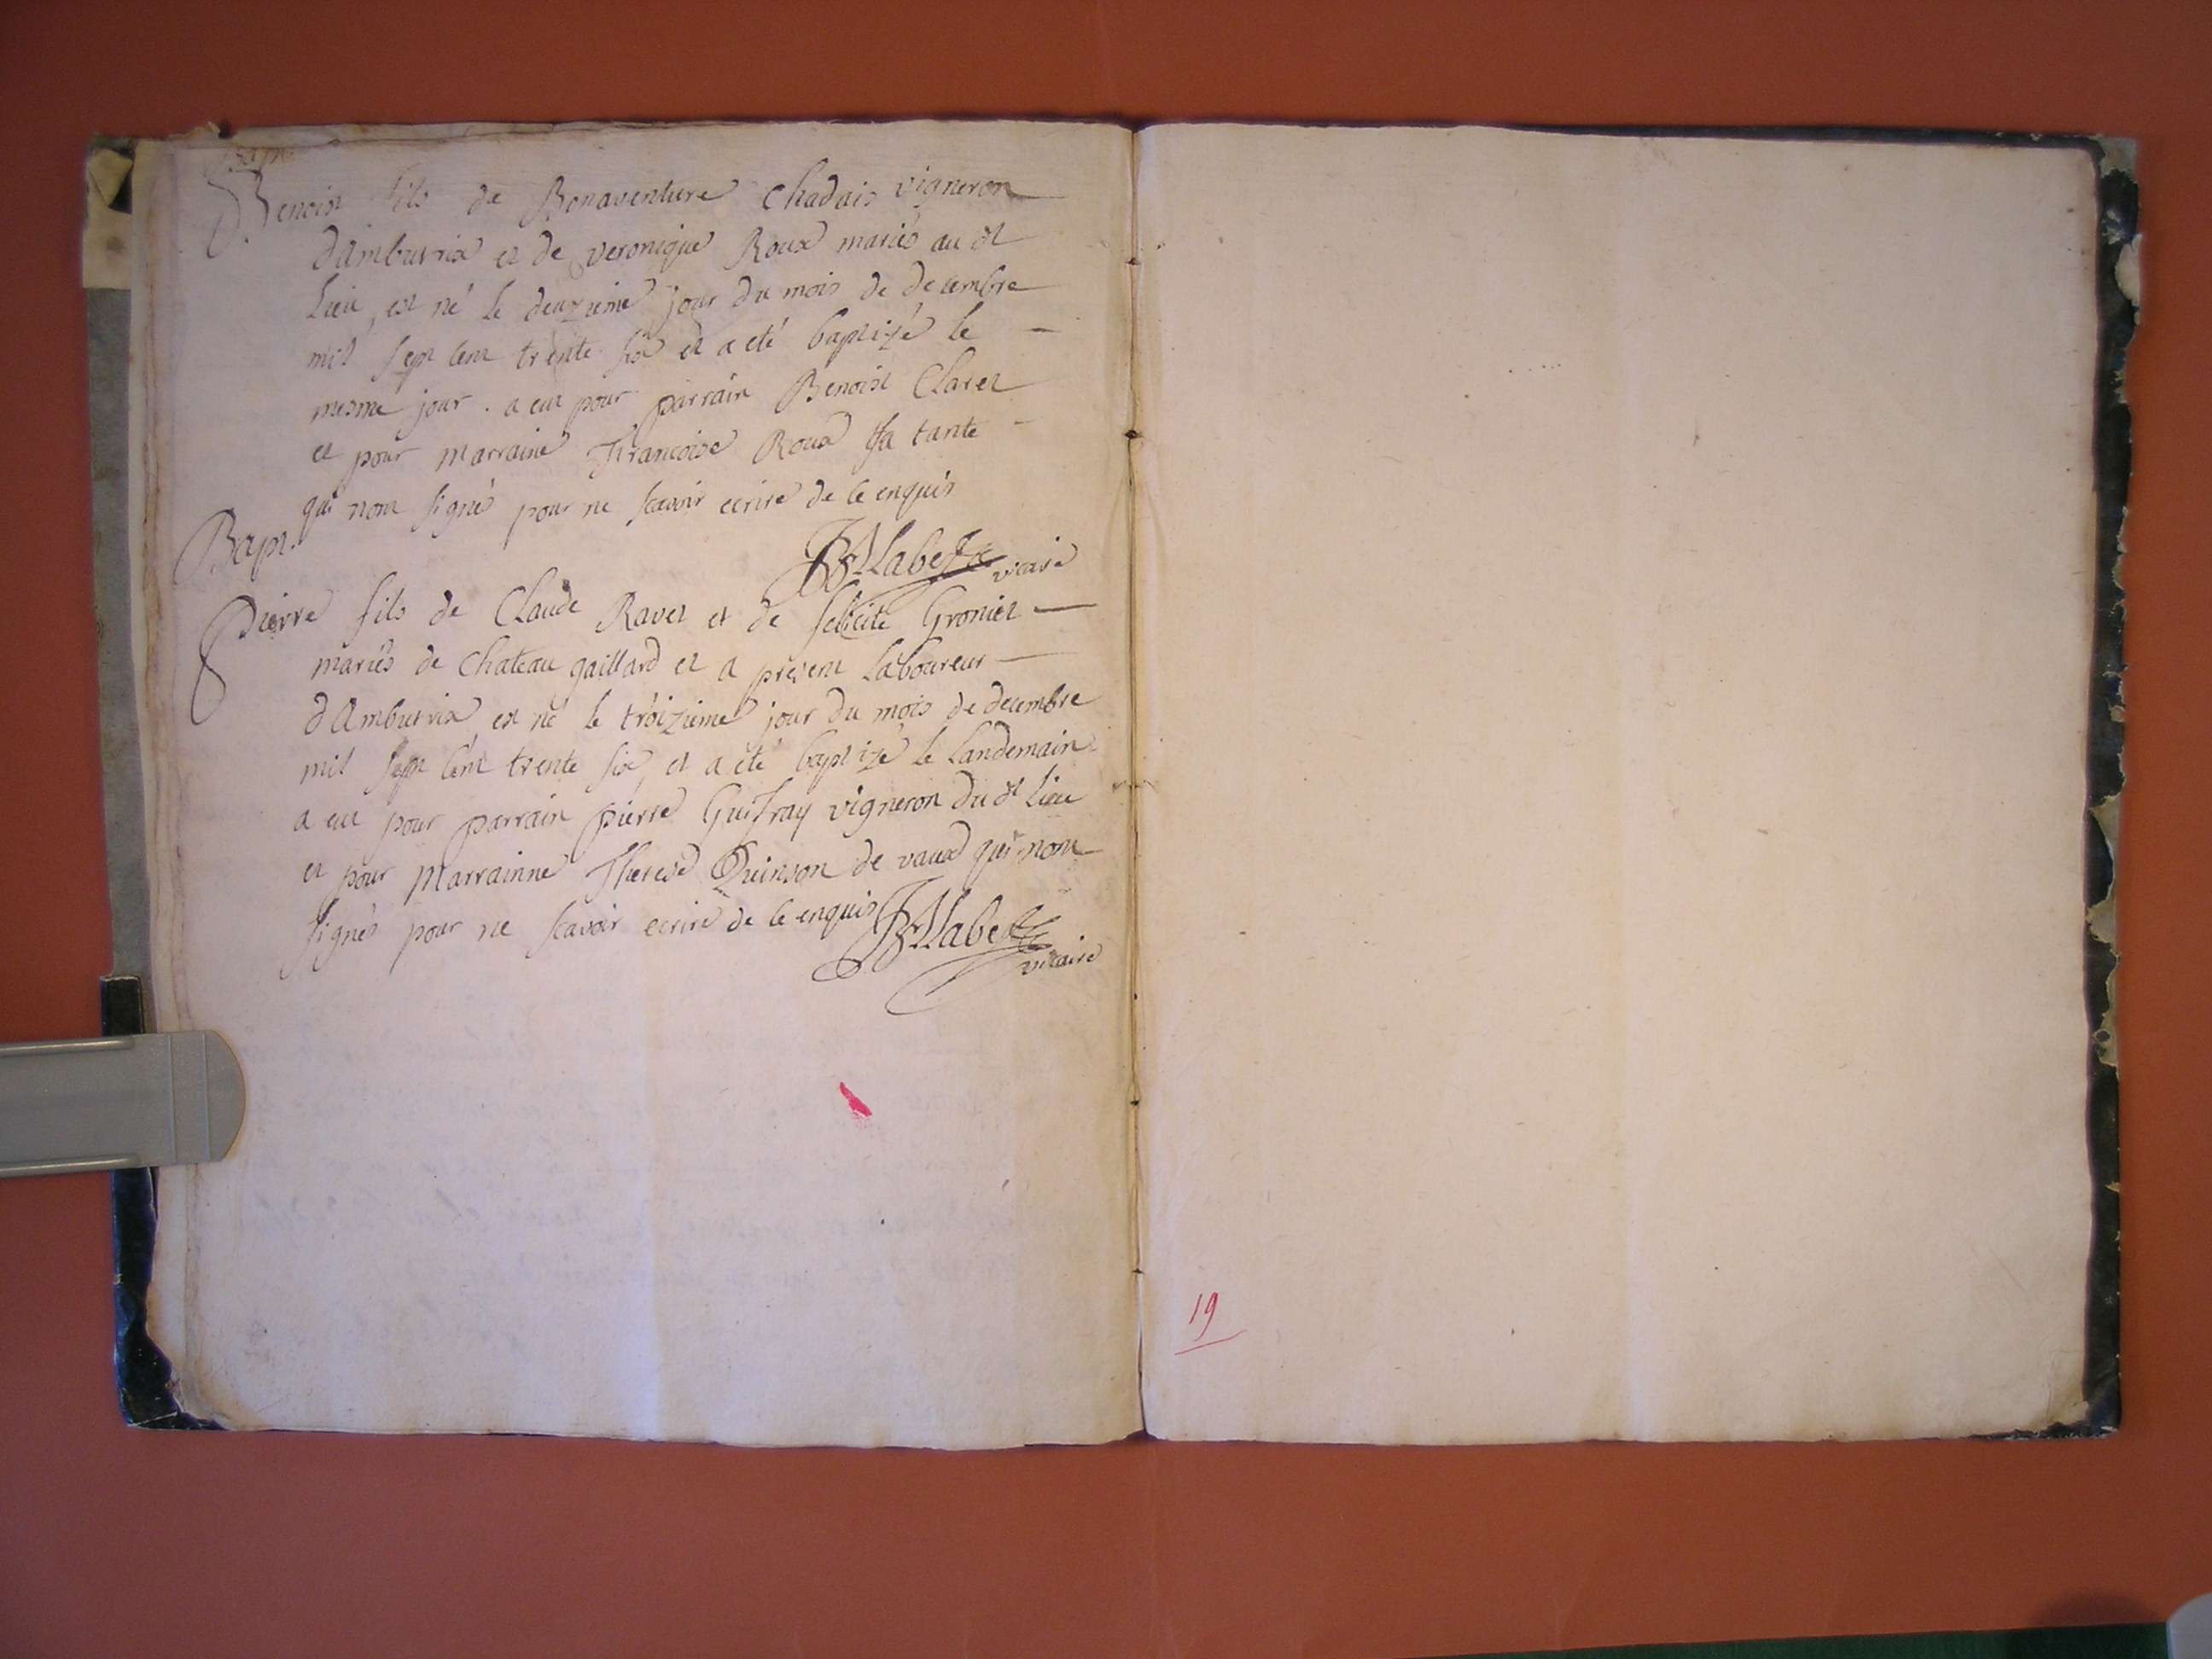 Bapt.
Benoist fils de Bonaventure Chadais vigneron
dAmbutrix et de veronique Roux mariés au dt
Lieu, est né le deuxieme jour du mois de decembre
mil sept cent trente six et a eté baptizé le
mesme jour. a eut pour parrain Benoist Claret
et pour marraine Francoise Roux sa tante
qui nont signés pour ne scavoir ecrire de ce enquis
vicaire
Bapt.
Pierre fils de Claude Ravet et de felicité Gronier
mariés de Chateau gaillard et a present Laboureur
dAmbutrix est né le troizieme jour du mois de decembre
mil sept cent trente six, et a eté baptizé le Landemain
a eut pour parrain pierre Guifray vigneron du dt Lieu
et pour Marrainne Therese Quinson de vaux qui nont
signés pour ne scavoir ecrire de ce enquis
vicaire
19